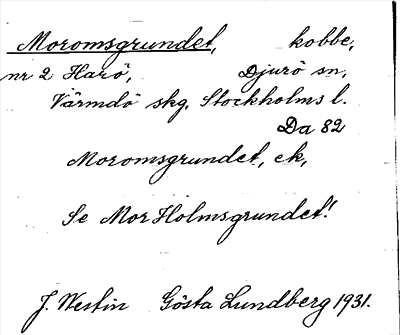 Moromsgrundet, kobbe,
nr 2 Harö, Djurö sn,
Värmdö skg. Stockholms l.
Da 82
Moromsgrundet, ek,
Se MorHolmsgrundet!
J. Westin Gösta Lundberg 1931.